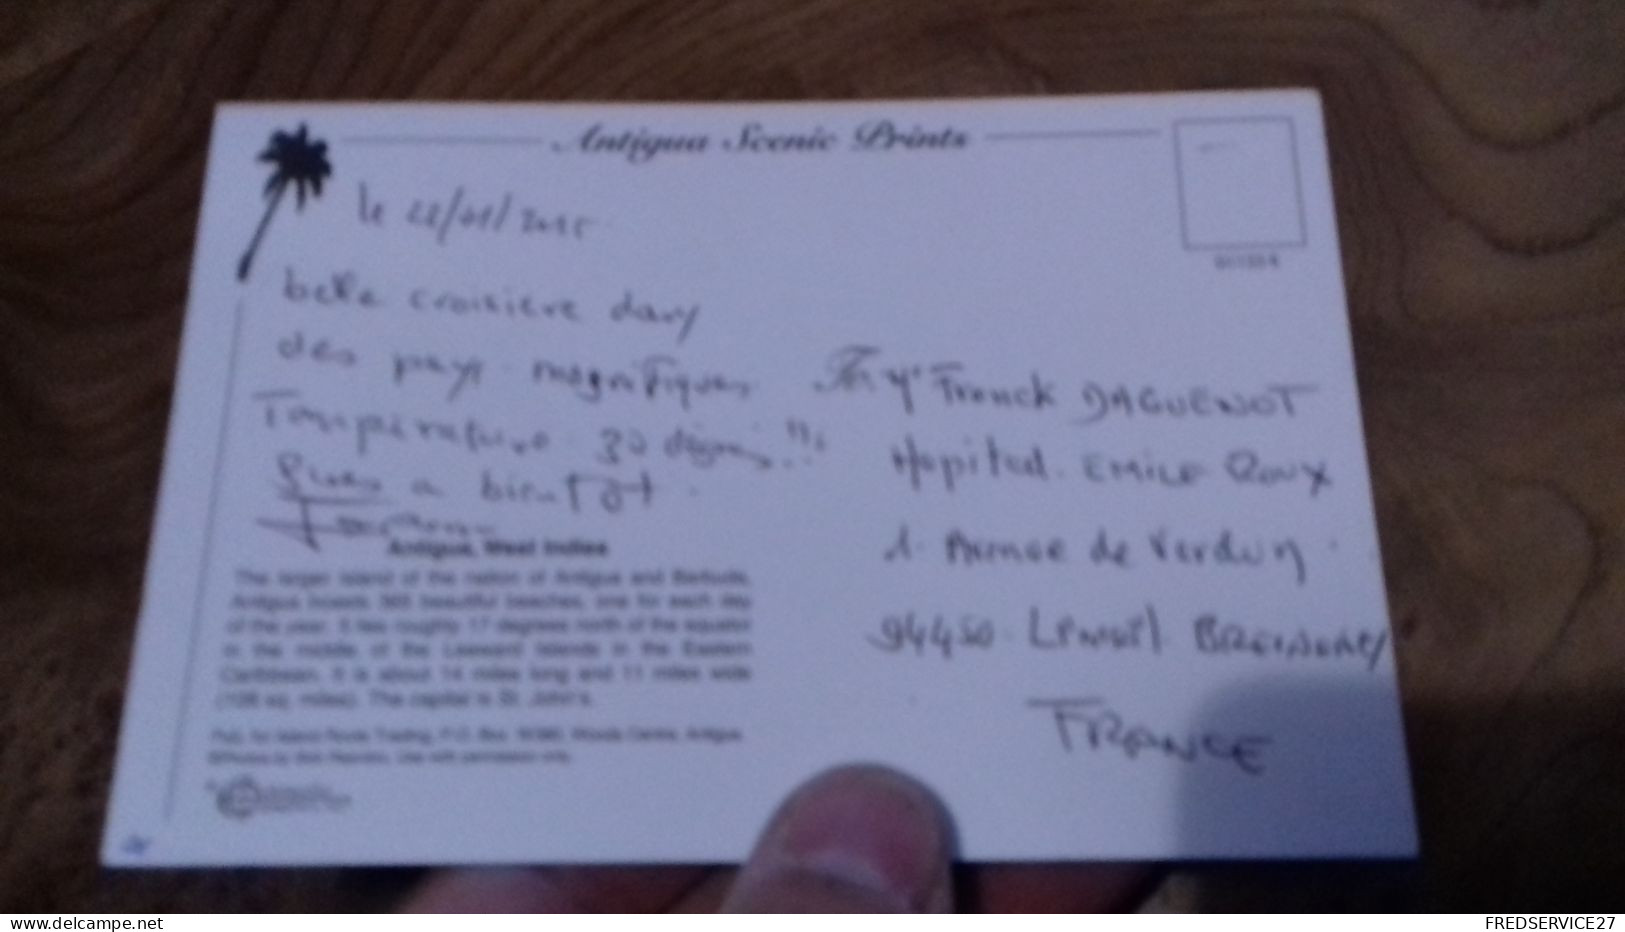 Antigua Scenic Prints
le 22/01/2015
belle croisière dans
des pays magnifiques
Température 30 degrés!!!
Bises a bientôt
Antigua, West Indies
The larger island of the nation of Antigua and Barbuda,
Antigua boasts 365 beautiful beaches, one for each day
of the year. It lies roughly 17 degrees north of the equator
in the middle of the Leeward Islands in the Eastern
Caribbean. It is about 14 miles long and 11 miles wide
(108 sq. miles). The capital is St. John's.
Pub. for Island Photo Trading, P.O. Box Woods Centre, Antigua.
Use with permission only.
Franck DAGUENOT
Hopital EMILE Roux
1 Avenue de Verdun
94450 Limeil BREVANNES
FRANCE
www.delcampe.net
FREDSERVICE27